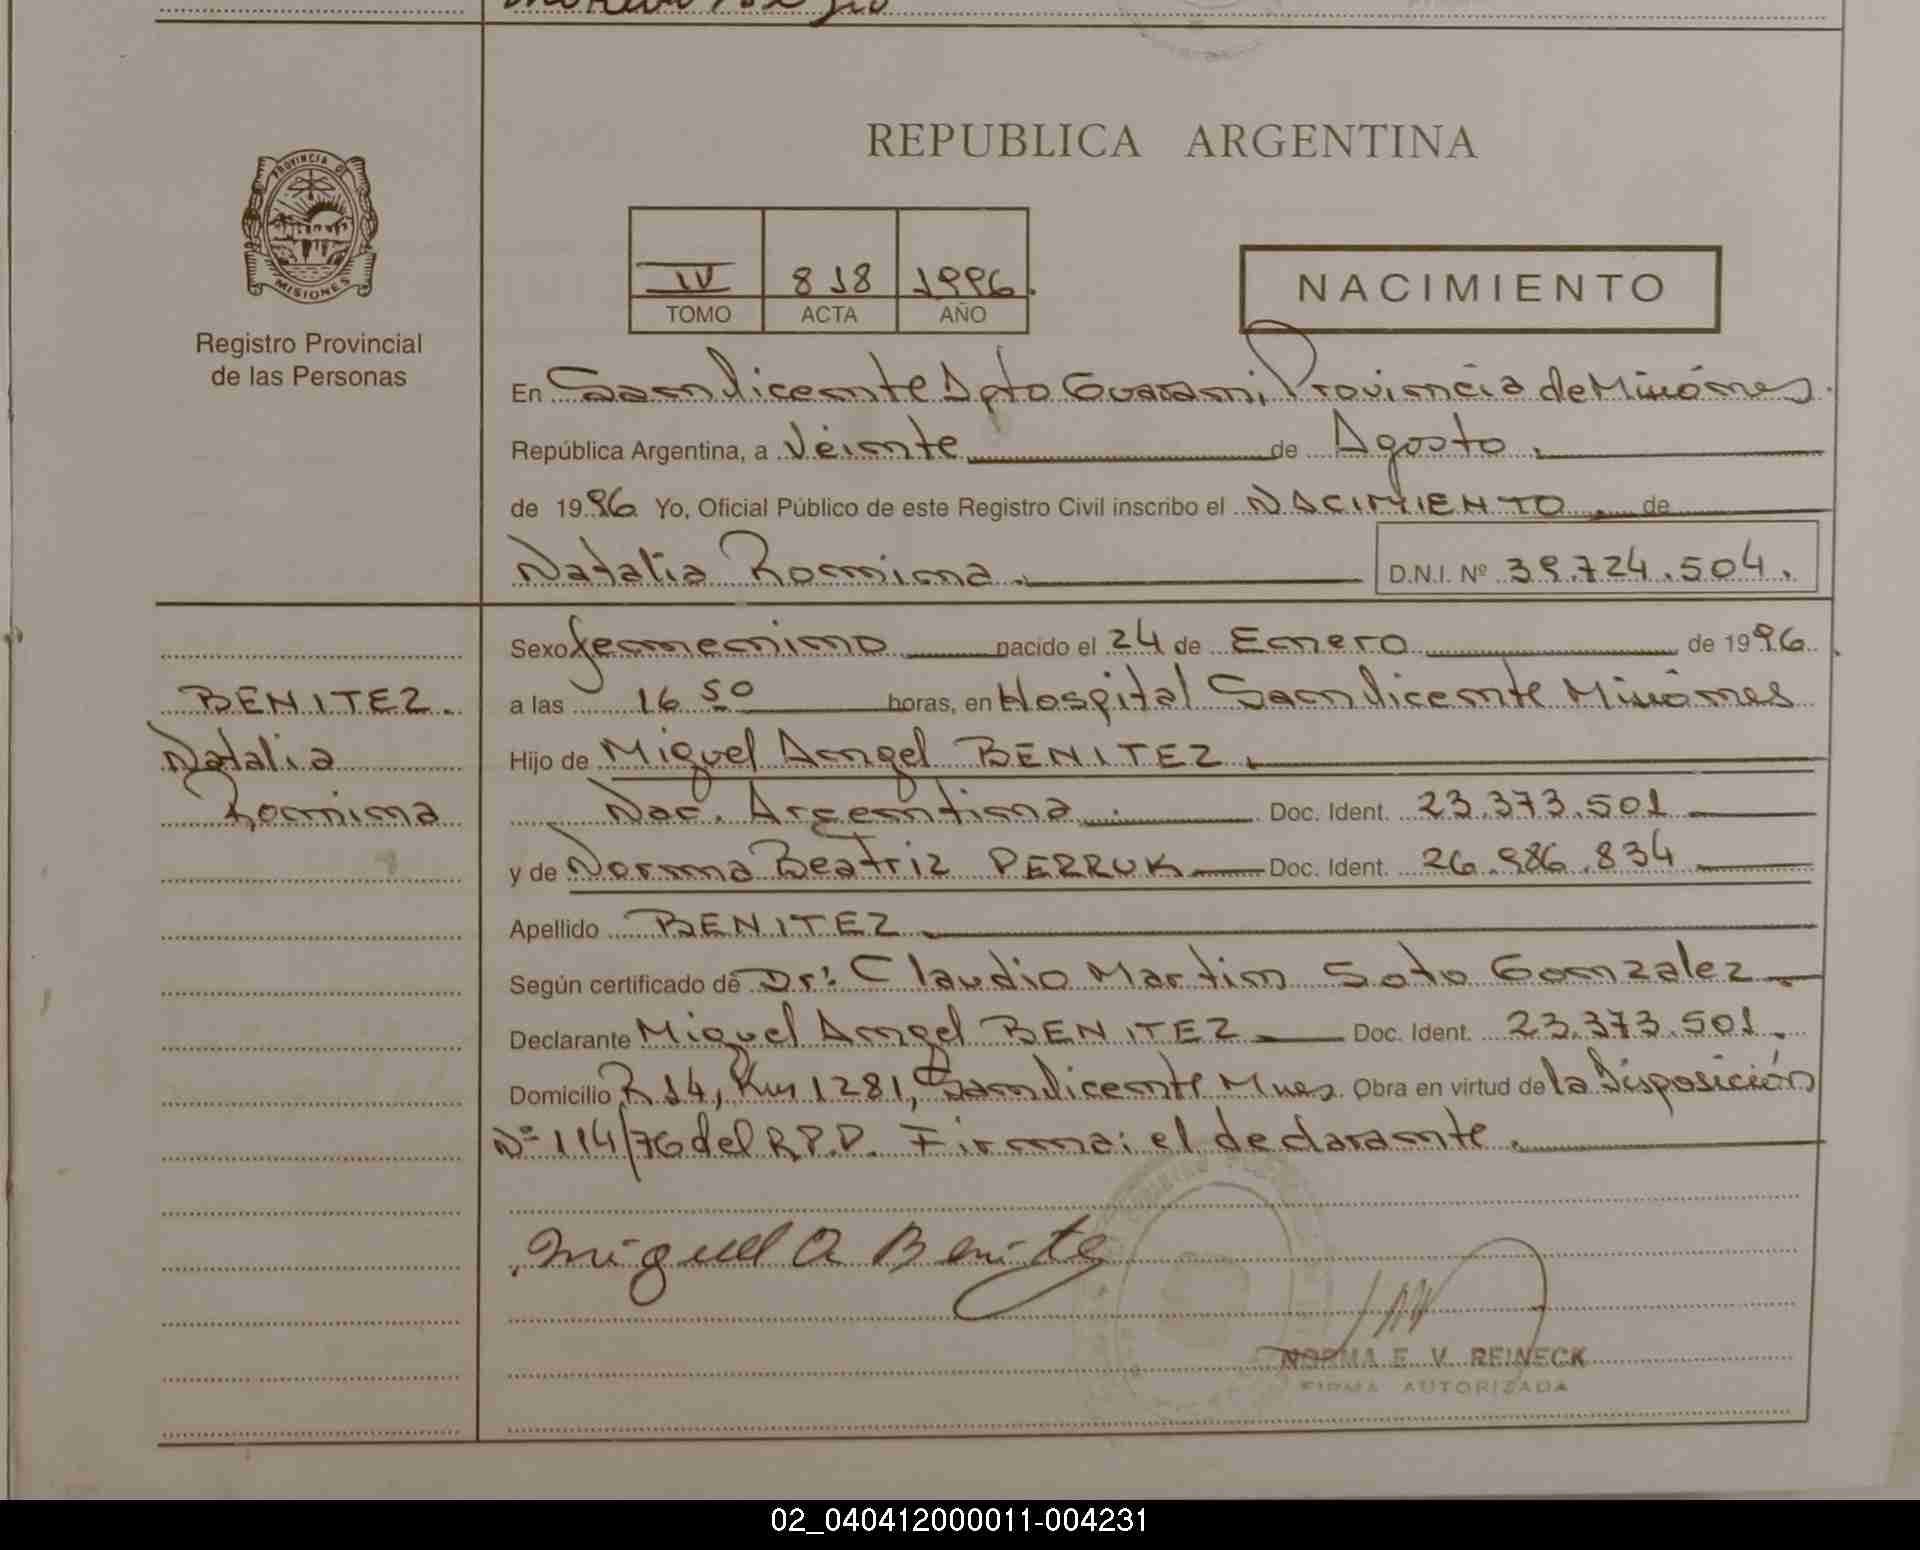 REPUBLICA ARGENTINA
PROVINCIA DE
MISIONES
Registro Provincial
de las Personas
IV 818 1996.
TOMO ACTA AÑO
NACIMIENTO
En San Vicente Dpto Guarani, Provincia de Misiónes.
República Argentina, a Veinte de Agosto.
de 1996 Yo, Oficial Público de este Registro Civil inscribo el NACIMIENTO. de
Natalia Romina. D.N.I. Nº 39.724.504.
BENITEZ.
Natalia
Romina
Sexo femenino nacido el 24 de Enero de 1996.
a las 16 50 horas, en Hospital San Vicente Misiónes
Hijo de Miguel Angel BENITEZ.
Nac. Argentina. Doc. Ident. 23.373.501
y de Norma Beatriz PERRUK Doc. Ident. 26.986.834
Apellido BENITEZ.
Según certificado de Dr: Claudio Martin Soto Gonzalez.
Declarante Miguel Angel BENITEZ Doc. Ident. 23.373.501.
Domicilio R 14, Km 1281, San Vicente Mnes. Obra en virtud de la Disposición
Nº 114/76 del R.P.P. Firma: el declarante.
Miguel A Benitez
NORMA E. V. REINECK
FIRMA AUTORIZADA
02_040412000011-004231